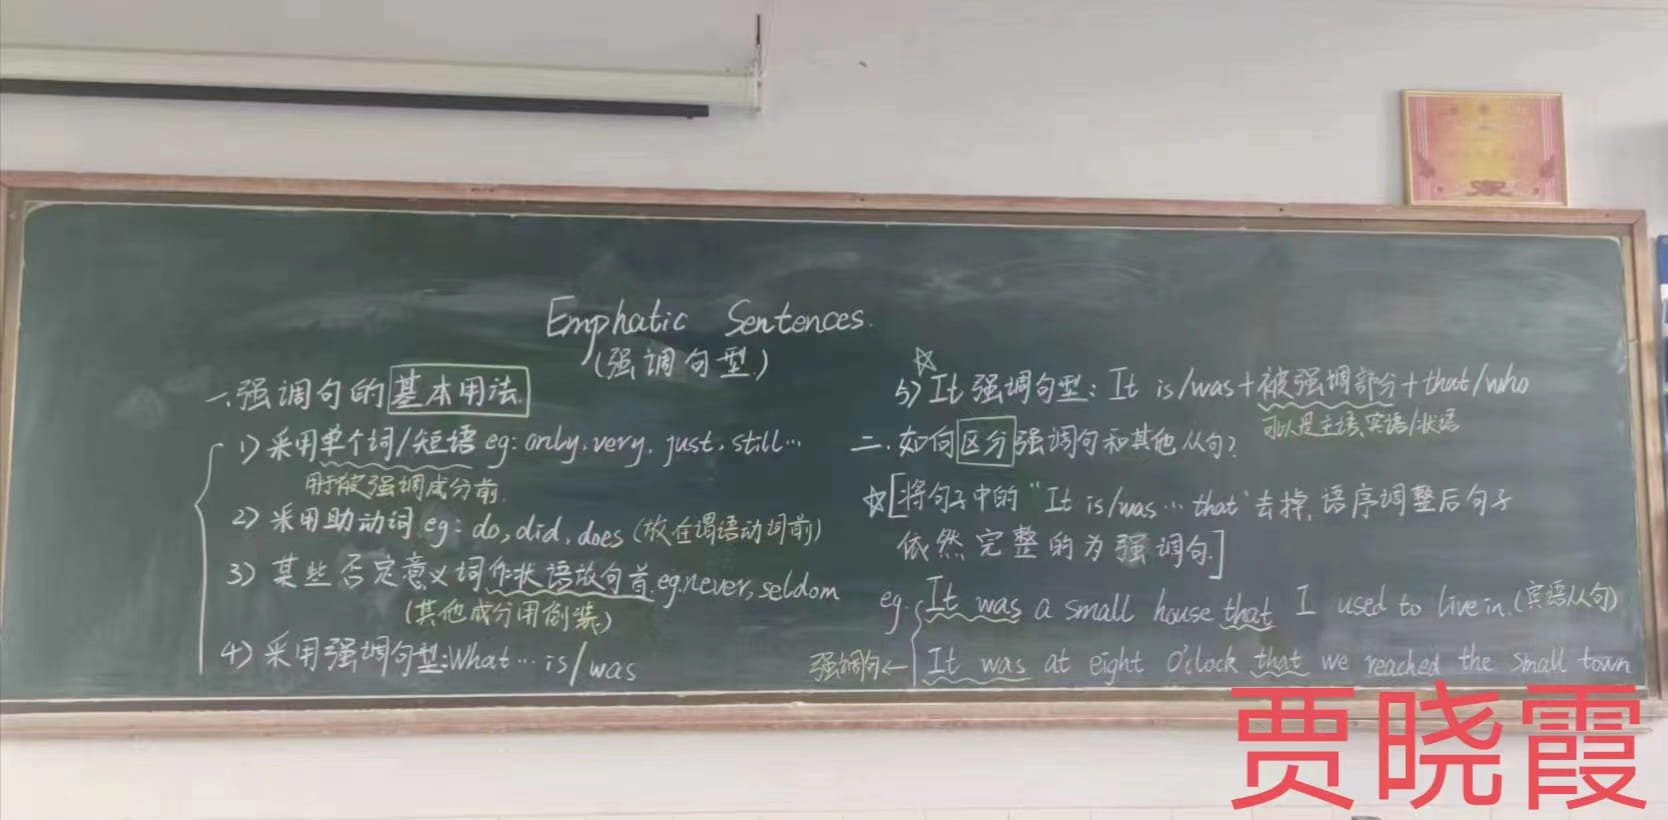 Emphatic Sentences.
(强调句型)
一、强调句的基本用法.
1) 采用单个词/短语 eg: only, very, just, still…
用于被强调成分前.
2) 采用助动词 eg: do, did, does (放在谓语动词前)
3) 某些否定意义词作状语放句首. eg. never, seldom
(其他成分用倒装)
4) 采用强调句型: What… is/was
☆
5) It 强调句型: It is/was + 被强调部分 + that/who
可以是主语、宾语/状语
二、如何区分强调句和其他从句?
☆[将句子中的"It is/was … that"去掉, 语序调整后句子
依然完整的为强调句.]
eg. It was a small house that I used to live in. (宾语从句)
强调句← It was at eight O'clock that we reached the small town
贾晓霞